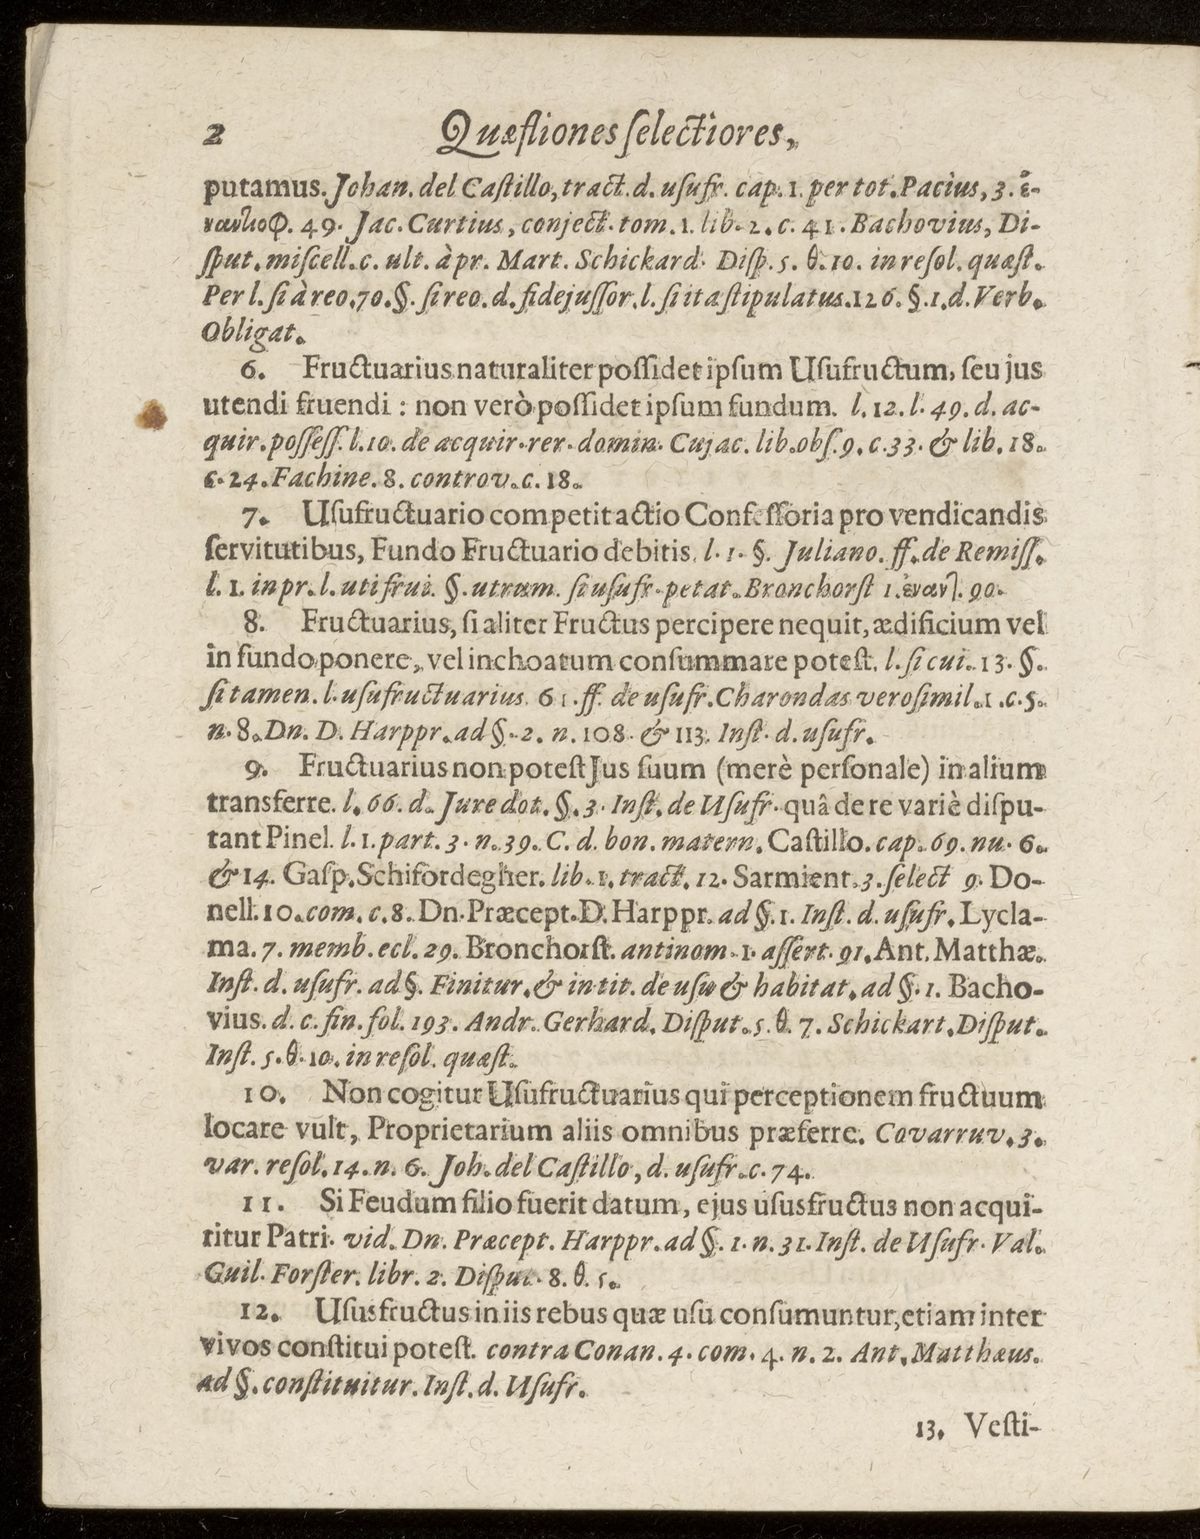 2 Quæſtiones ſelectiores,
putamus. Johan. del Caſtillo, tract. d. uſufr. cap. 1. per tot. Pacius, 3. ἐ-
ναντιοφ. 49. Jac. Curtius, conject. tom. 1. lib. 2. c. 41. Bachovius, Di-
ſput. miſcell. c. ult. à pr. Mart. Schickard. Diſp. 5. θ. 10. in reſol. quæſt.
Per l. ſi à reo. 70. §. ſi reo. d. fidejuſſor. l. ſi ita ſtipulatus. 126. §. 1. d. Verb.
Obligat.
6. Fructuarius naturaliter poſſidet ipſum Uſufructum, ſeu jus
utendi fruendi : non verò poſſidet ipſum fundum. l. 12. l. 49. d. ac-
quir. poſſeſſ. l. 10. de acquir. rer. domin. Cujac. lib. obſ. 9. c. 33. & lib. 18.
c. 24. Fachine. 8. controv. c. 18.
7. Uſufructuario competit actio Confeſſoria pro vendicandis
ſervitutibus, Fundo Fructuario debitis. l. 1. §. Juliano. ff. de Remiſſ.
l. 1. in pr. l. uti frui. §. utrum. ſi uſufr. petat. Bronchorſt 1. ἐναντ. 90.
8. Fructuarius, ſi aliter Fructus percipere nequit, ædificium vel
in fundo ponere, vel inchoatum conſummare poteſt. l. ſi cui. 13. §.
ſi tamen. l. uſufructuarius. 61. ff. de uſufr. Charondas veroſimil. 1. c. 5.
n. 8. Dn. D. Harppr. ad §. 2. n. 108. & 113. Inſt. d. uſufr.
9. Fructuarius non poteſt Jus ſuum (merè perſonale) in alium
transferre. l. 66. d. Jure dot. §. 3. Inſt. de Uſufr. quâ de re variè diſpu-
tant Pinel. l. 1. part. 3. n. 39. C. d. bon. matern. Caſtillo. cap. 69. nu. 6.
& 14. Gaſp. Schifordegher. lib. 1. tract. 12. Sarmient. 3. ſelect 9. Do-
nell. 10. com. c. 8. Dn. Præcept. D. Harppr. ad §. 1. Inſt. d. uſufr. Lycla-
ma. 7. memb. ecl. 29. Bronchorſt. antinom. 1. aſſert. 91. Ant. Matthæ.
Inſt. d. uſufr. ad §. Finitur. & in tit. de uſu & habitat. ad §. 1. Bacho-
vius. d. c. fin. fol. 193. Andr. Gerhard. Diſput. 5. θ. 7. Schickart. Diſput.
Inſt. 5. θ. 10. in reſol. quæſt.
10. Non cogitur Uſufructuarius qui perceptionem fructuum
locare vult, Proprietarium aliis omnibus præferre. Covarruv. 3.
var. reſol. 14. n. 6. Joh. del Caſtillo, d. uſufr. c. 74.
11. Si Feudum filio fuerit datum, ejus uſusfructus non acqui-
ritur Patri. vid. Dn. Præcept. Harppr. ad §. 1. n. 31. Inſt. de Uſufr. Val.
Guil. Forſter. libr. 2. Diſput. 8. θ. 5.
12. Uſusfructus in iis rebus quæ uſu conſumuntur, etiam inter
vivos conſtitui poteſt. contra Conan. 4. com. 4. n. 2. Ant. Matthæus.
ad §. conſtituitur. Inſt. d. Uſufr.
13. Veſti-